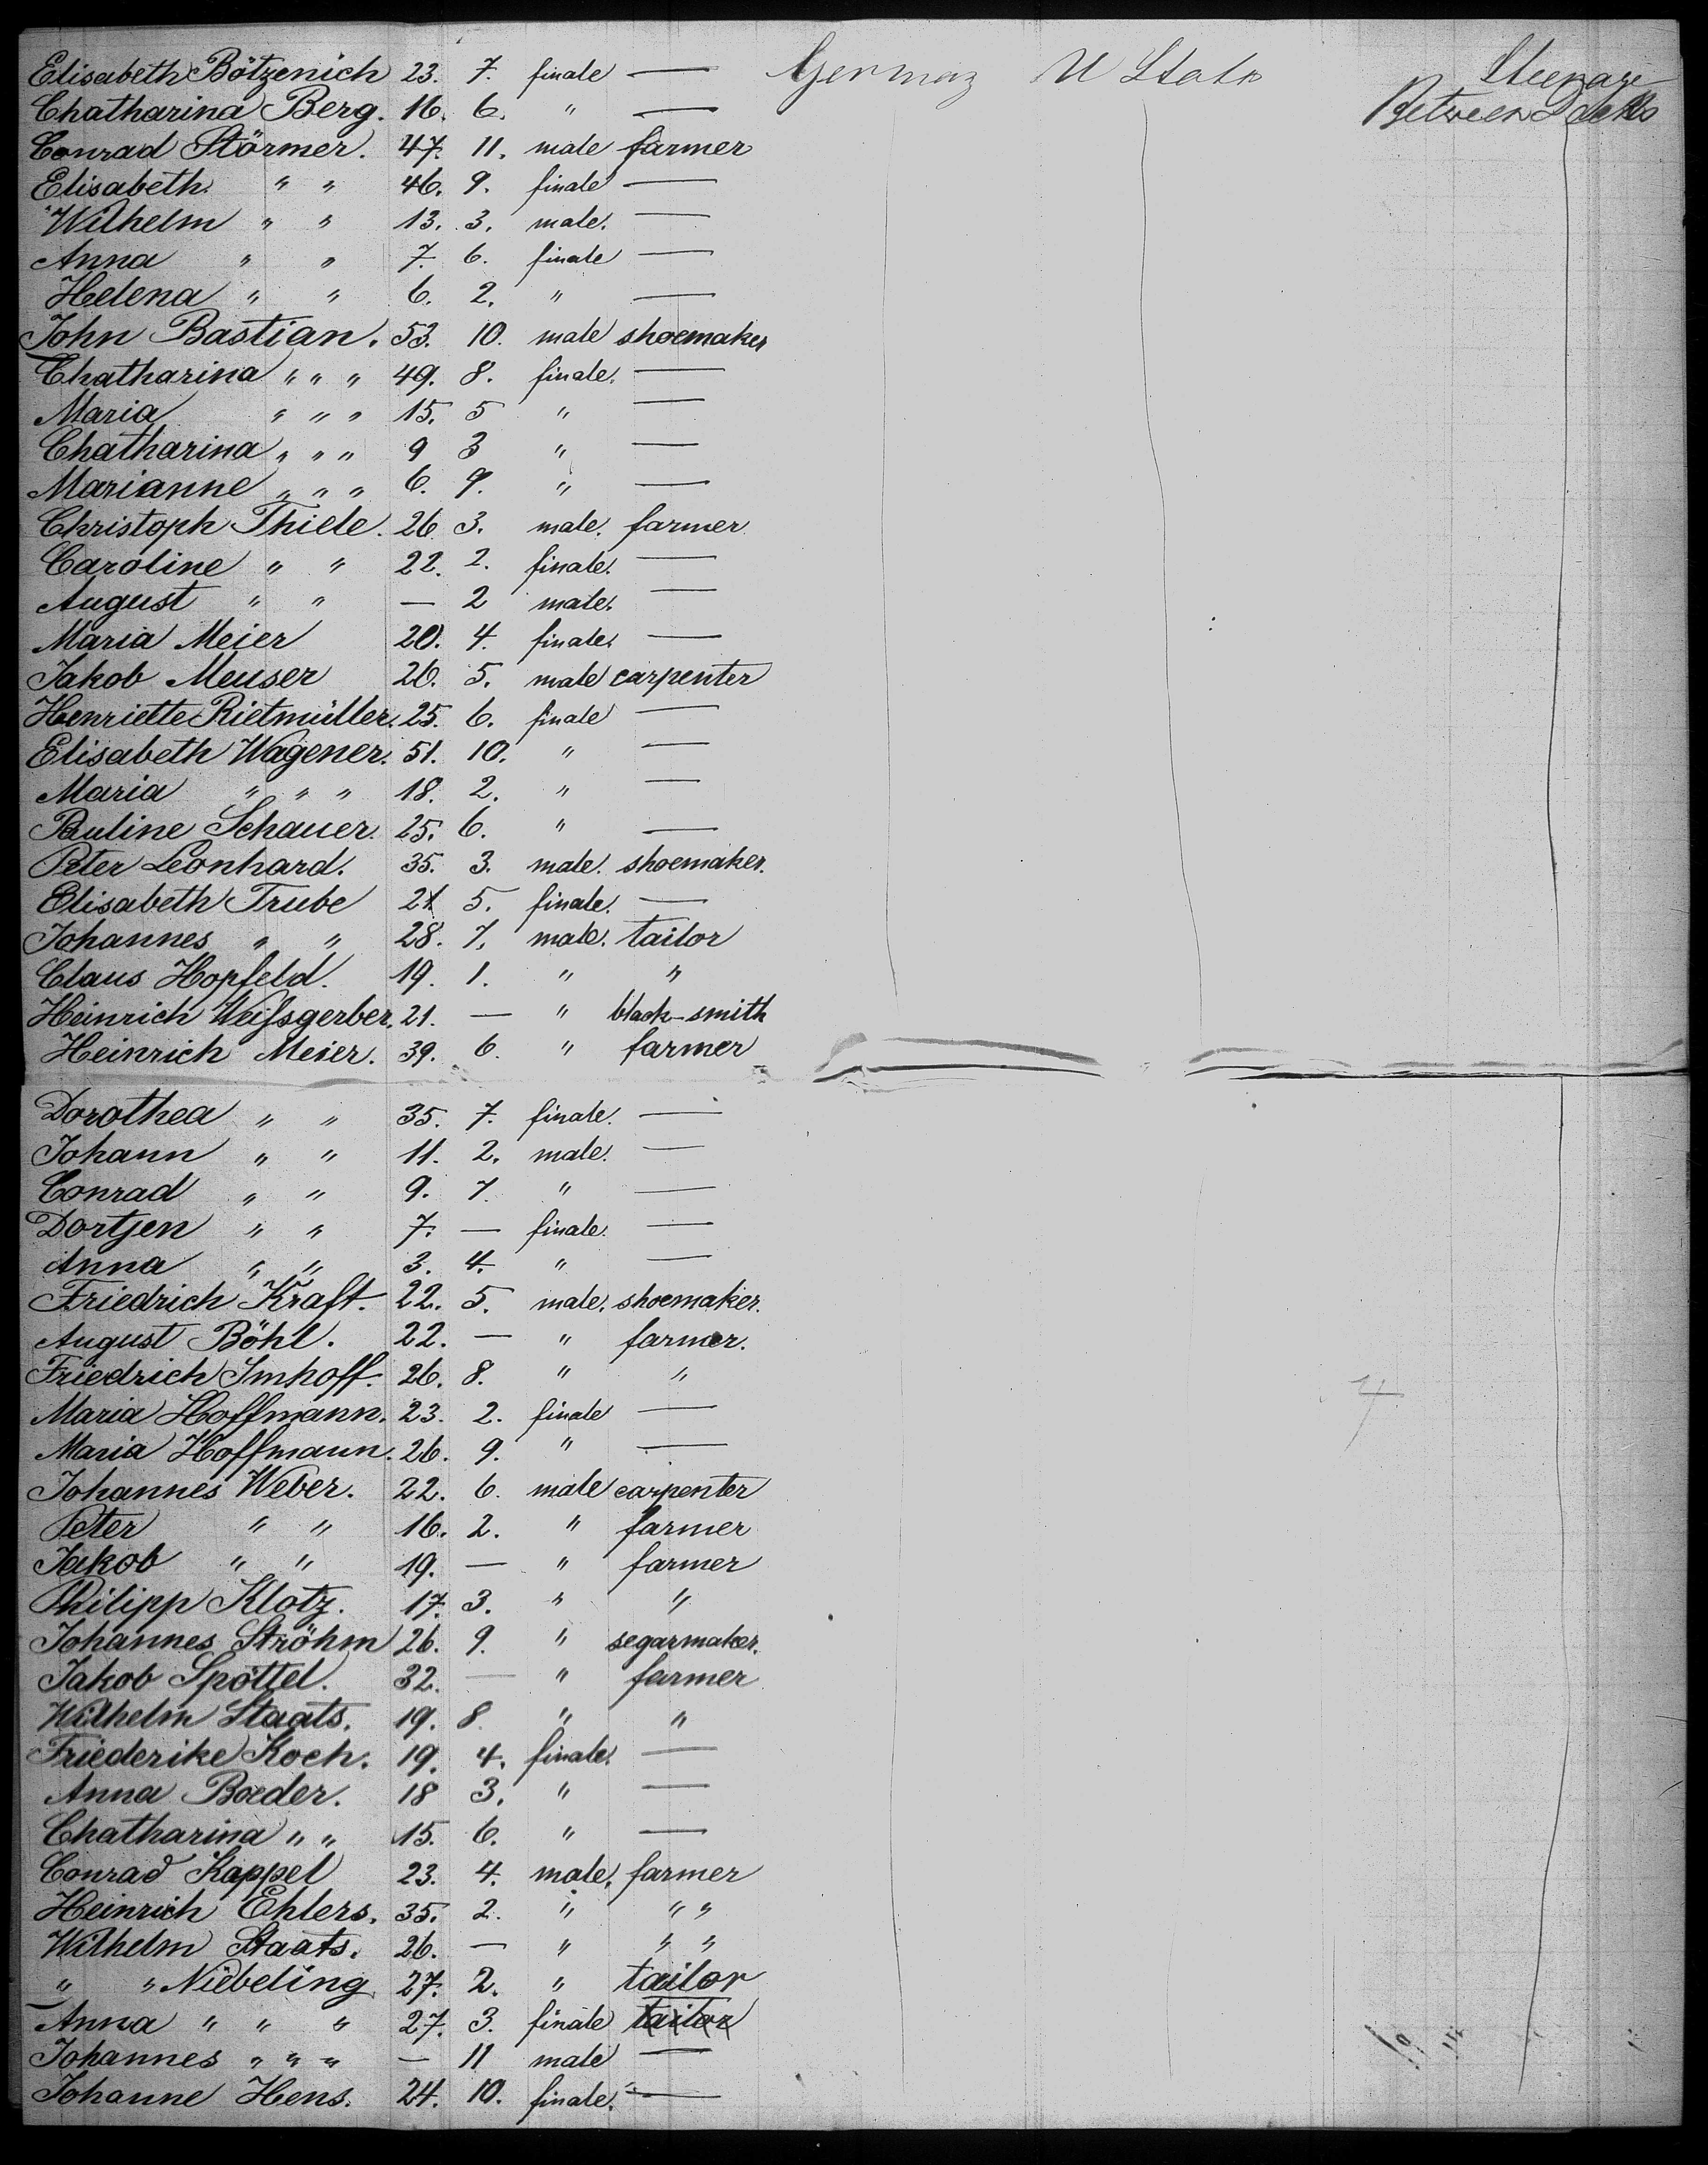 Elisabeth Bötzenich 23. 7. finale — Germany U States Steerage
Chatharina Berg. 16. 6. " — Between Decks
Conrad Störmer. 47. 11. male farmer
Elisabeth " " 46. 9. finale —
Wilhelm " " 13. 3. male. —
Anna " " 7. 6. finale —
Helena " " 6. 2. " —
John Bastian. 53. 10. male shoemaker
Chatharina " " " 49. 8. finale. —
Maria " " " 15. 5 " —
Chatharina " " " 9 3 " —
Marianne " " " 6. 9. " —
Christoph Thiele. 26. 3. male. farmer.
Caroline " " 22. 2. finale. —
August " " — 2 male. —
Maria Meier 20. 4. finale. —
Jakob Meuser 26. 5. male carpenter
Henriette Rietmüller. 25. 6. finale —
Elisabeth Wagener. 51. 10. " —
Maria " " " 18. 2. " —
Pauline Schauer. 25. 6. " —
Peter Leonhard. 35. 3. male. shoemaker.
Elisabeth Trube 21. 5. finale. —
Johannes " " 28. 7. male. tailor
Claus Hopfeld. 19. 1. " "
Heinrich Weißgerber. 21. — " black-smith
Heinrich Meier. 39. 6. " farmer
Dorothea " " 35. 7. finale. —
Johann " " 11. 2. male. —
Conrad " " 9. 7. " —
Dortjen " " 7. — finale. —
Anna " " 3. 4. " —
Friedrich Kraft. 22. 5. male. shoemaker.
August Böhl. 22. — " farmer.
Friedrich Imhoff. 26. 8. " "
Maria Hoffmann. 23. 2. finale —
Maria Hoffmann. 26. 9. " —
Johannes Weber. 22. 6. male carpenter
Peter " " 16. 2. " farmer
Jakob " " 19. — " farmer
Philipp Klotz. 17. 3. " "
Johannes Ströhm 26. 9. " segarmaker.
Jakob Spöttel. 32. — " farmer
Wilhelm Staats. 19. 8. " "
Friederike Koch. 19. 4. finale. —
Anna Boeder. 18 3. " —
Chatharina " " 15. 6. " —
Conrad Kappel 23. 4. male. farmer
Heinrich Ehlers. 35. 2. " " "
Wilhelm Staats. 26. — " " "
" " Niebeling 27. 2. " tailor
Anna " " " 27. 3. finale tailor
Johannes " " " — 11 male —
Johanne Hens. 24. 10. finale. —